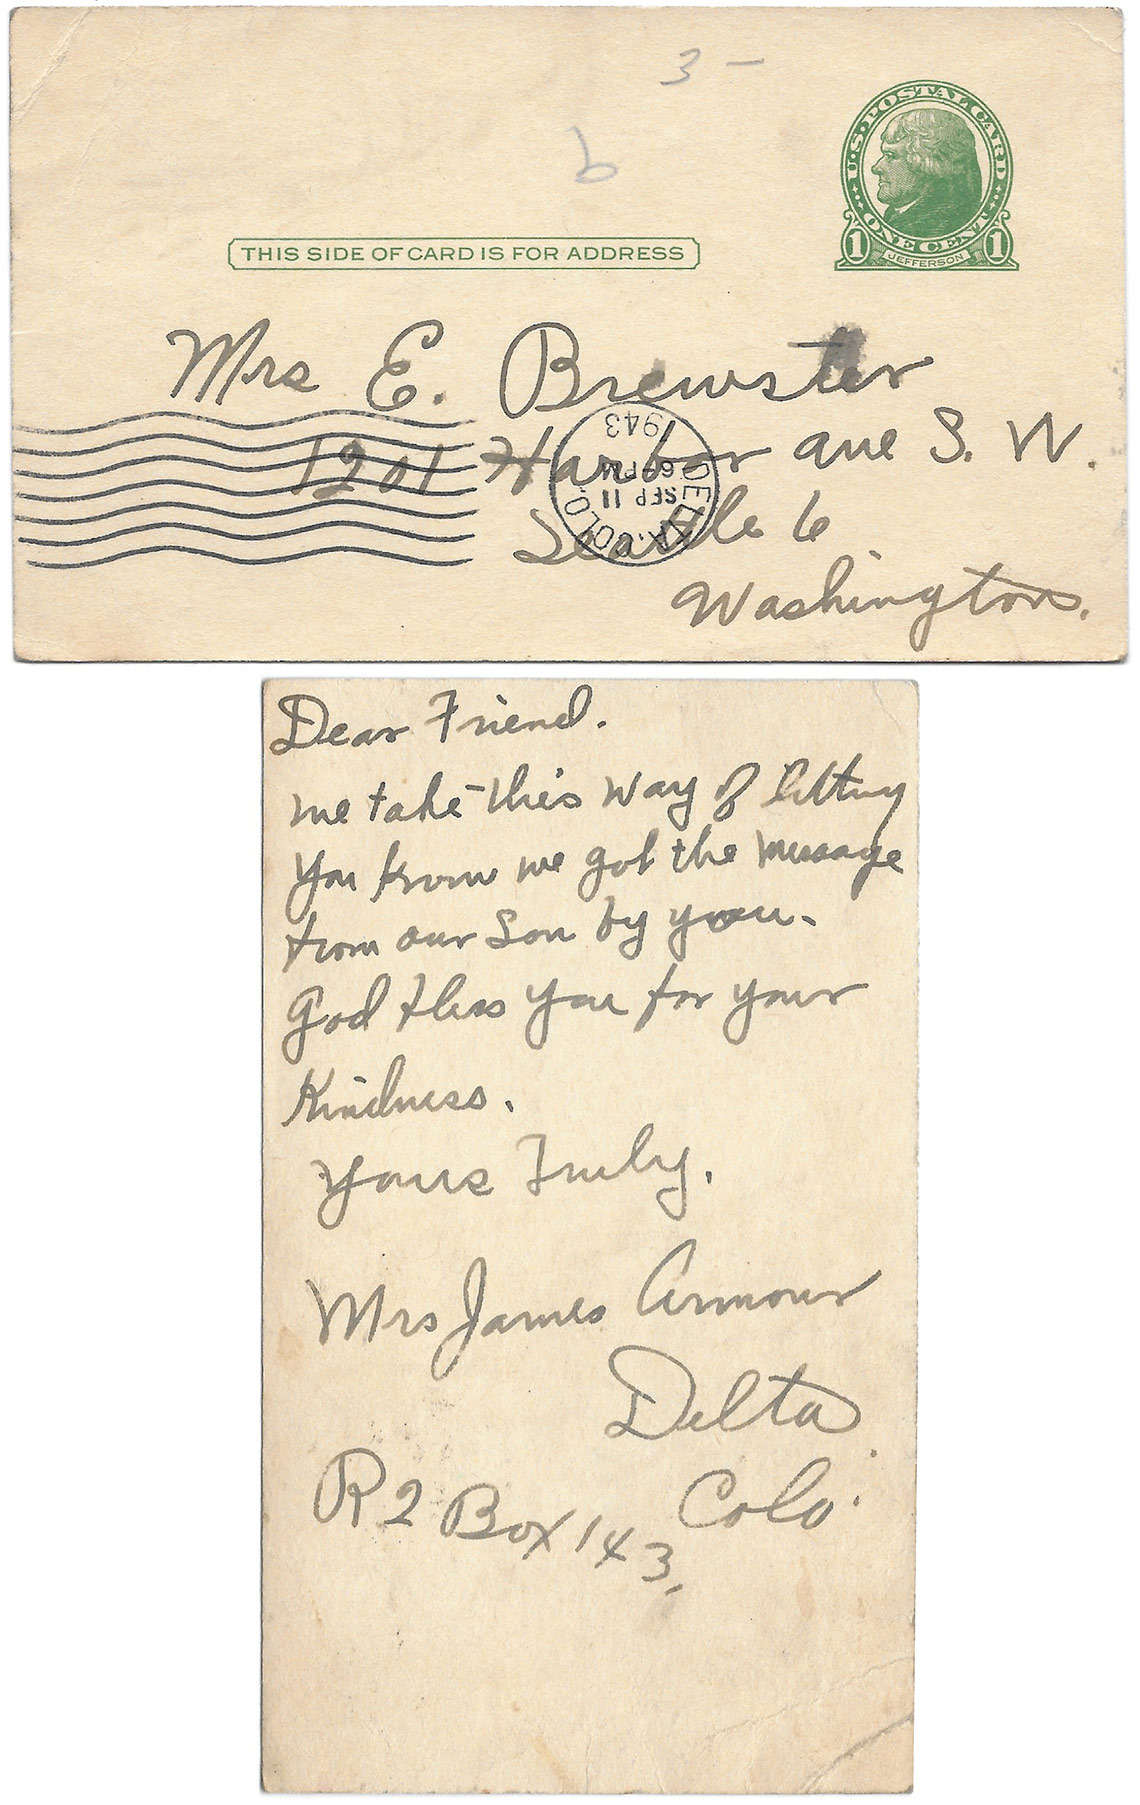 3 -
6
U.S. POSTAL CARD
ONE CENT
1 JEFFERSON 1
THIS SIDE OF CARD IS FOR ADDRESS
Mrs E. Brewster
1201 Harbor ave S. W.
Seattle 6
Washington.
DELTA, COLO.
SEP 11
6 PM
1943
Dear Friend.
we take this way of letting
you know we got the message
from our Son by you.
God bless you for your
Kindness.
Yours Truly.
Mrs James Armour
Delta
Colo.
R 2 Box 143,